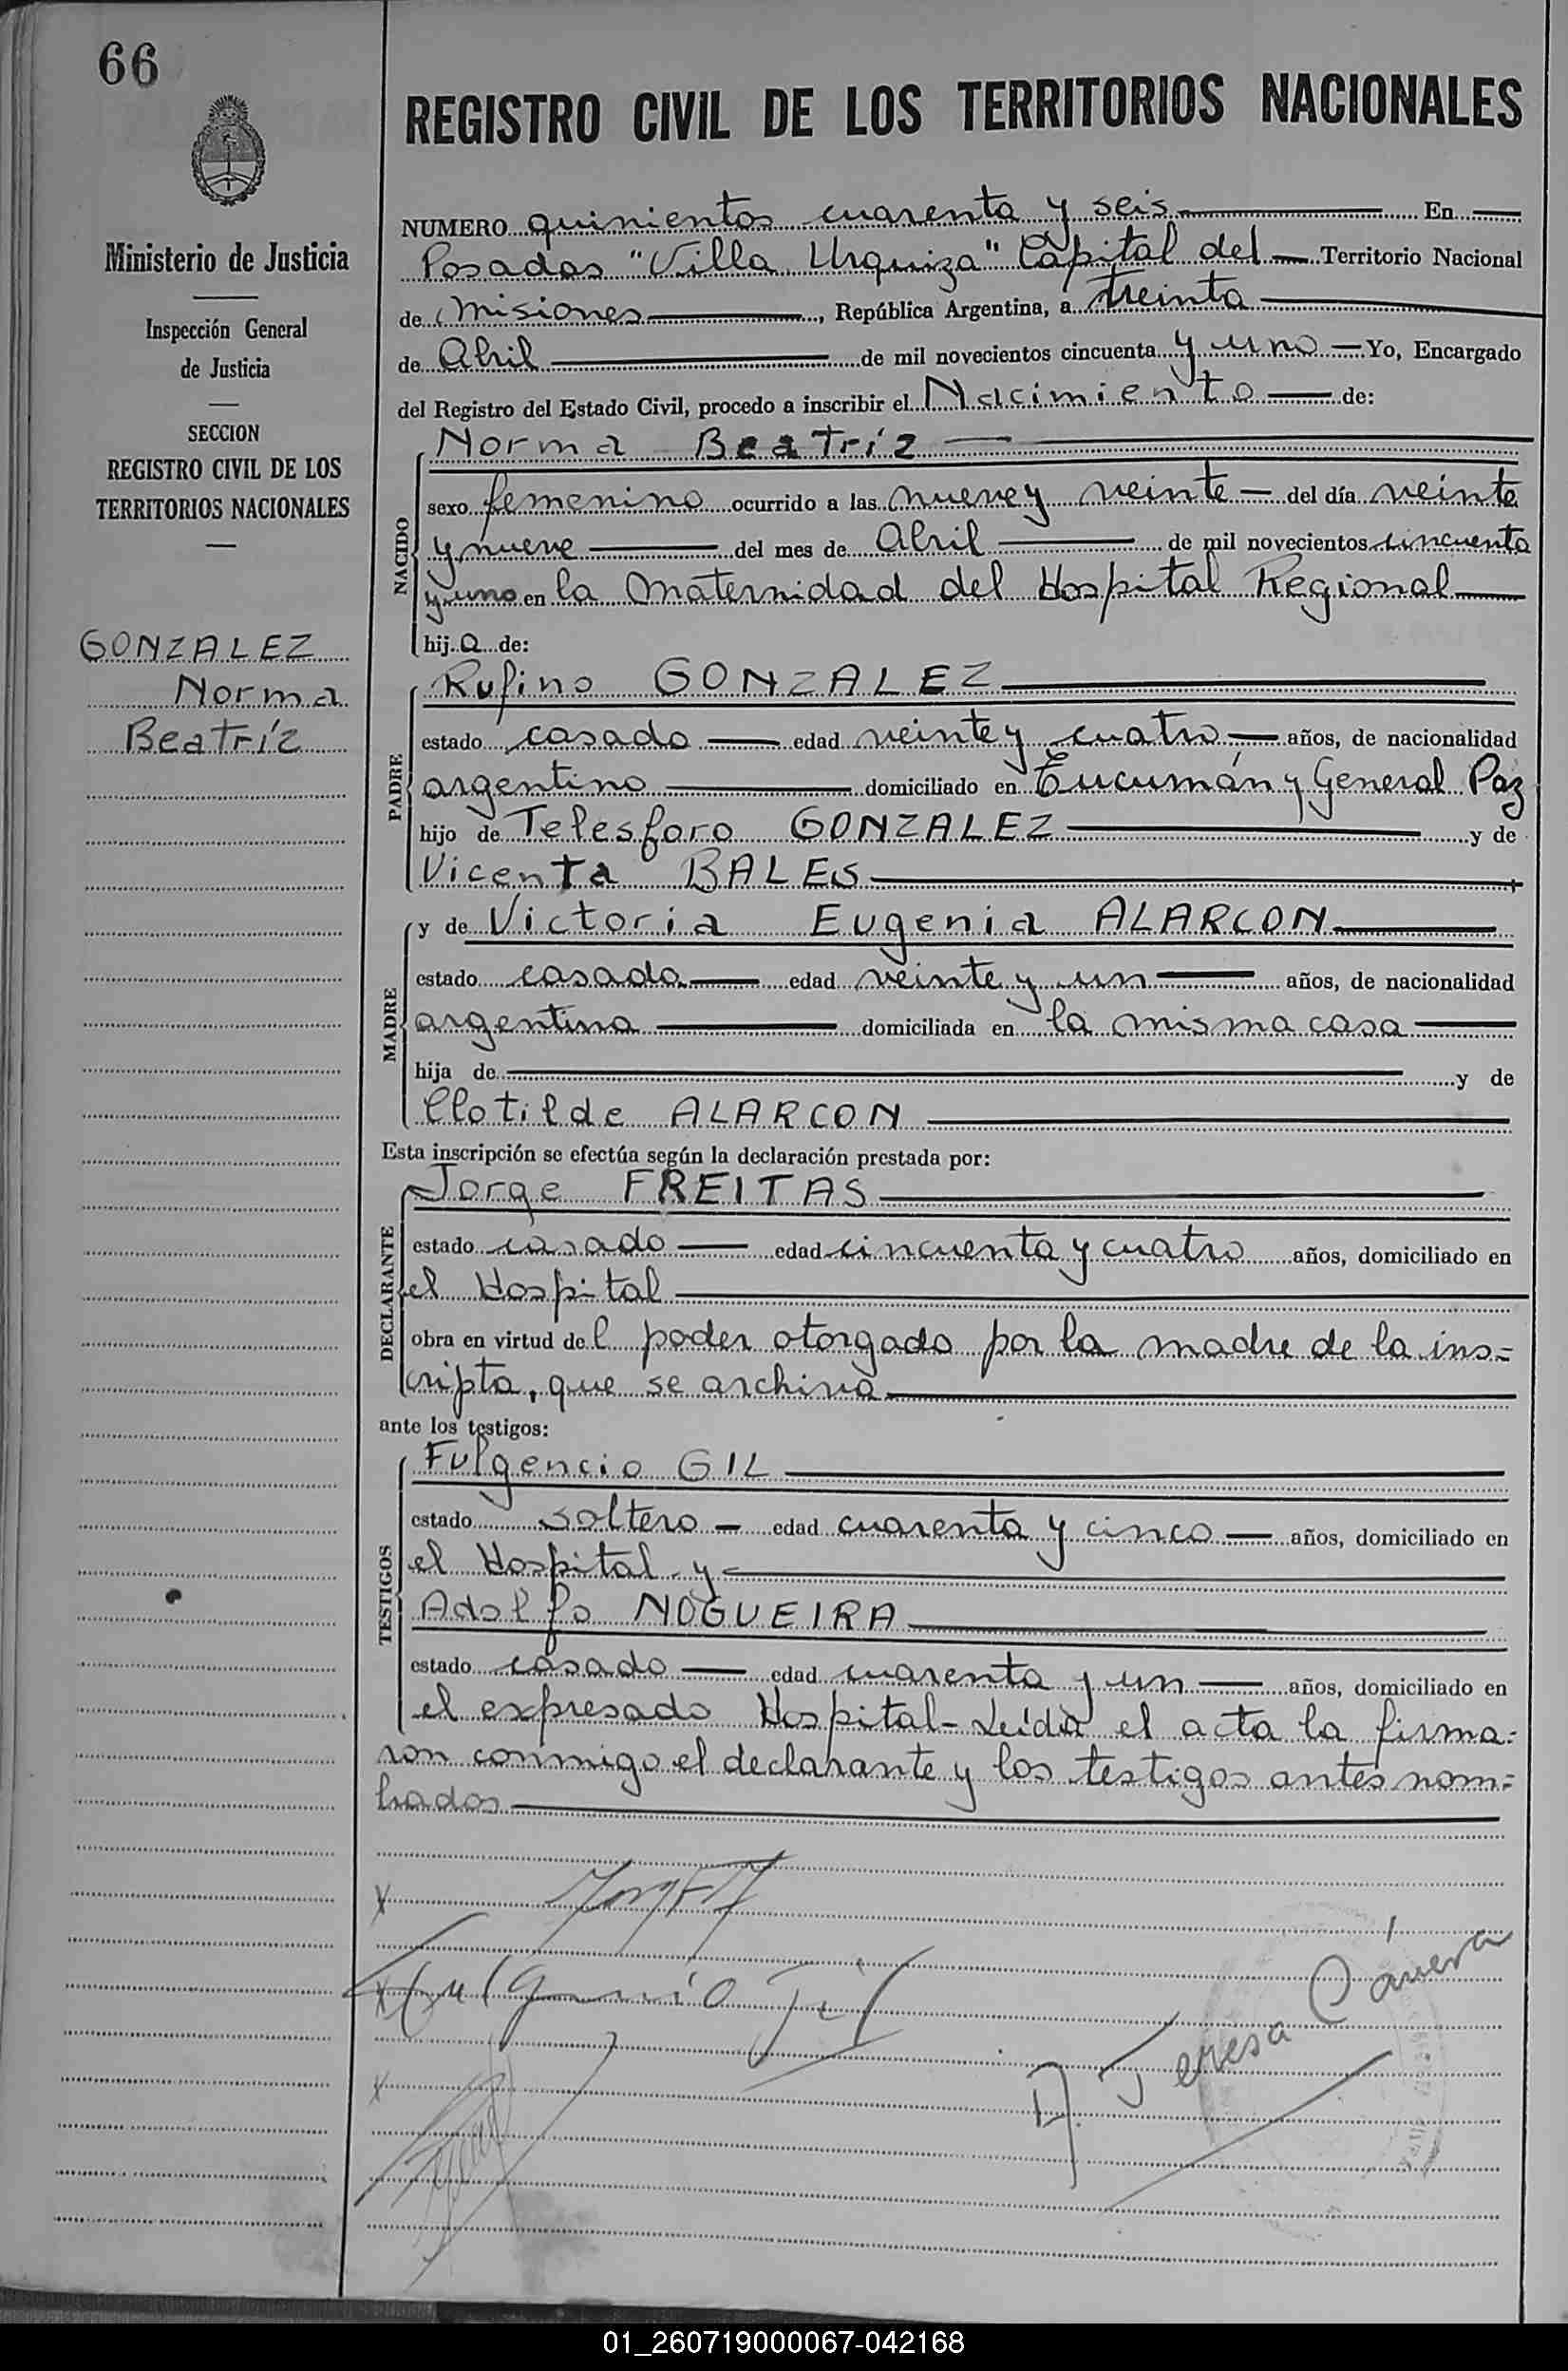 66
REGISTRO CIVIL DE LOS TERRITORIOS NACIONALES
Ministerio de Justicia
Inspección General
de Justicia
SECCION
REGISTRO CIVIL DE LOS
TERRITORIOS NACIONALES
GONZALEZ
Norma
Beatríz
NUMERO quinientos cuarenta y seis En
Posadas "Villa Urquiza" Capital del Territorio Nacional
de Misiones, República Argentina, a treinta
de Abril de mil novecientos cincuenta y uno Yo, Encargado
del Registro del Estado Civil, procedo a inscribir el Nacimiento de:
NACIDO
Norma Beatríz
sexo femenino ocurrido a las nueve y veinte del día veinte
y nueve del mes de Abril de mil novecientos cincuenta
y uno en la Maternidad del Hospital Regional
hija de:
PADRE
Rufino GONZALEZ
estado casado edad veinte y cuatro años, de nacionalidad
argentino domiciliado en Tucumán y General Paz
hijo de Telesforo GONZALEZ y de
Vicenta BALES
MADRE
y de Victoria Eugenia ALARCON
estado casada edad veinte y un años, de nacionalidad
argentina domiciliada en la misma casa
hija de y de
Clotilde ALARCON
Esta inscripción se efectúa según la declaración prestada por:
DECLARANTE
Jorge FREITAS
estado casado edad cincuenta y cuatro años, domiciliado en
el Hospital
obra en virtud del poder otorgado por la madre de la ins=
cripta, que se archiva
ante los testigos:
TESTIGOS
Fulgencio GIL
estado soltero edad cuarenta y cinco años, domiciliado en
el Hospital y
Adolfo NOGUEIRA
estado casado edad cuarenta y un años, domiciliado en
el expresado Hospital-Leída el acta la firma=
ron conmigo el declarante y los testigos antes nom=
brados
x
x Fulgencio Gil
x
Teresa
01_260719000067-042168